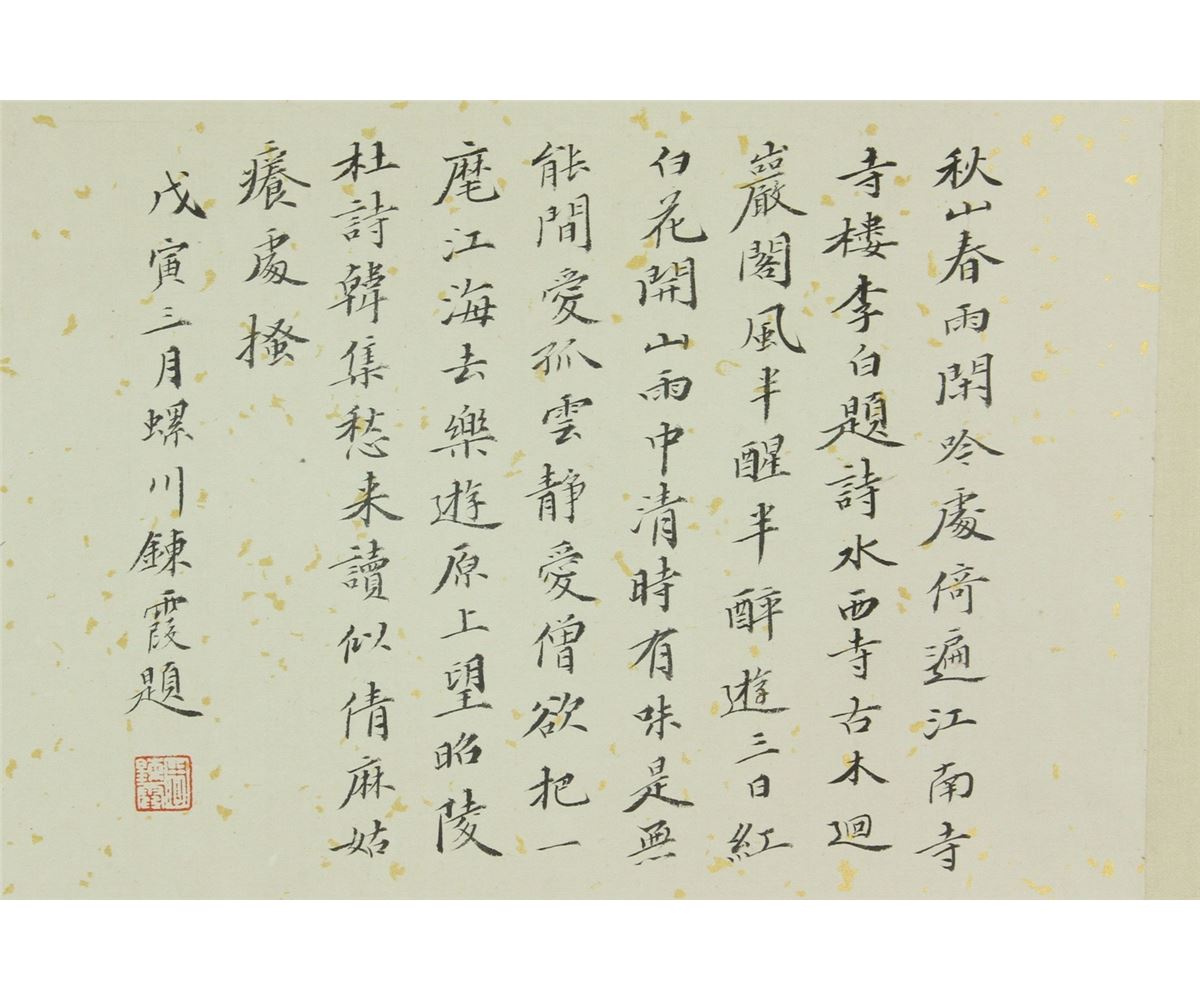 秋山春雨閑吟處倚遍江南寺
寺樓李白題詩水西寺古木迴
巖閣風半醒半醉遊三日紅
白花開山雨中清時有味是無
能間愛孤雲靜愛僧欲把一
麾江海去樂遊原上望昭陵
杜詩韓集愁来讀似倩麻姑
癢處搔
戊寅三月螺川鍊霞題